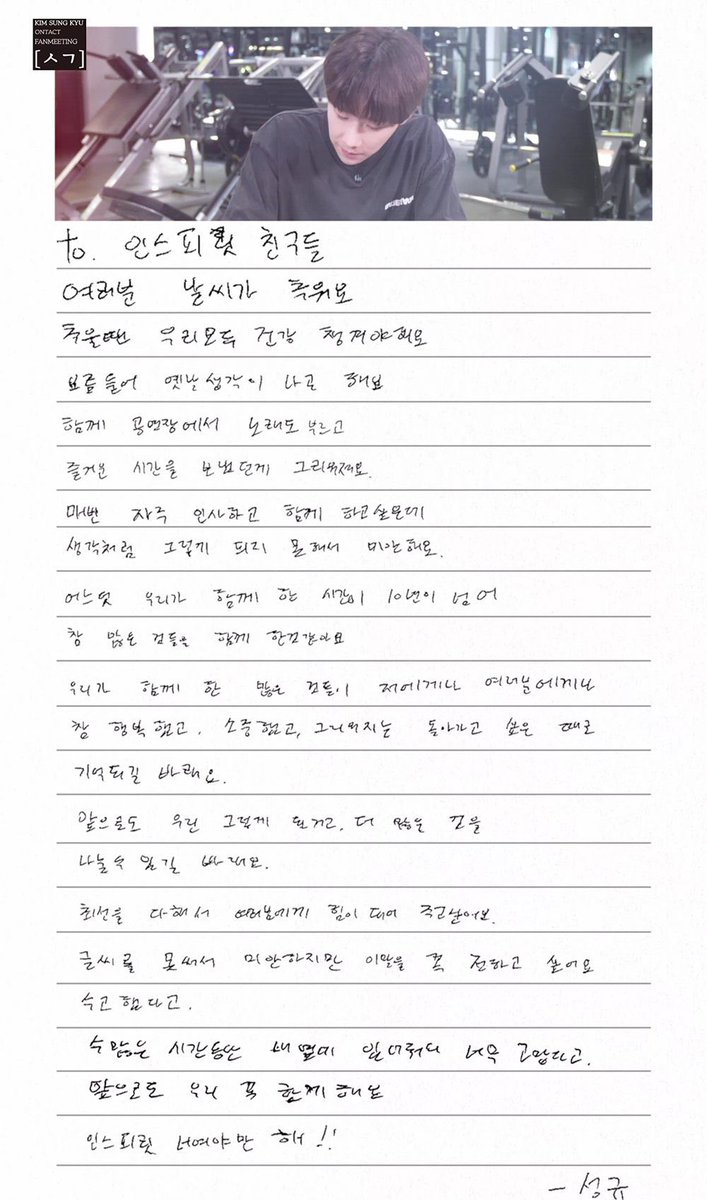 KIM SUNG KYU
ONTACT
FANMEETING
[ㅅㄱ]
to. 인스피릿 친구들
여러분 날씨가 추워요
추울땐 우리모두 건강 챙겨야해요
요즘들어 옛날생각이 나곤 해요
함께 공연장에서 노래도 부르고
즐거운 시간을 보냈던게 그리워져요.
매번 자주 인사하고 함께 하고싶은데
생각처럼 그렇게 되지 못해서 미안해요.
어느덧 우리가 함께 한 시간이 10년이 넘어
참 많은 것들을 함께 한것같아요
우리가 함께 한 많은 것들이 저에게나 여러분에게나
참 행복했고, 소중했고, 그리워지는 돌아가고 싶은 때로
기억되길 바래요.
앞으로도 우린 그렇게 될거고, 더 많은 것을
나눌수 있길 바래요.
최선을 다해서 여러분에게 힘이 되어 주고싶어요.
글씨를 못써서 미안하지만 이말을 꼭 전하고 싶어요
수고했다고.
수많은 시간동안 내 옆에 있어줘서 너무 고맙다고.
앞으로도 우리 꼭 함께해요
인스피릿 너여야만 해!!
- 성규